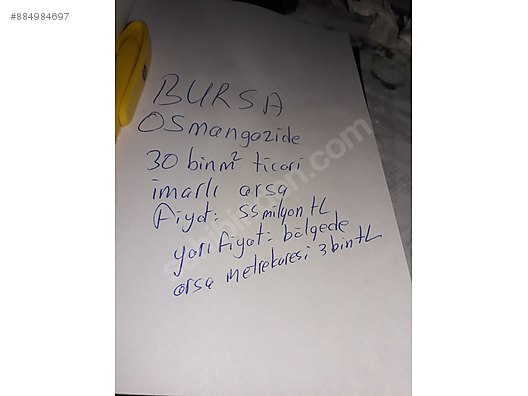 #884984697
BURSA
Osmangazide
30 bin m² ticari
imarlı arsa
fiyat: 55 milyon tL
yarı fiyat: bölgede
arsa metrekaresi 3 bin tL
sahibinden.com